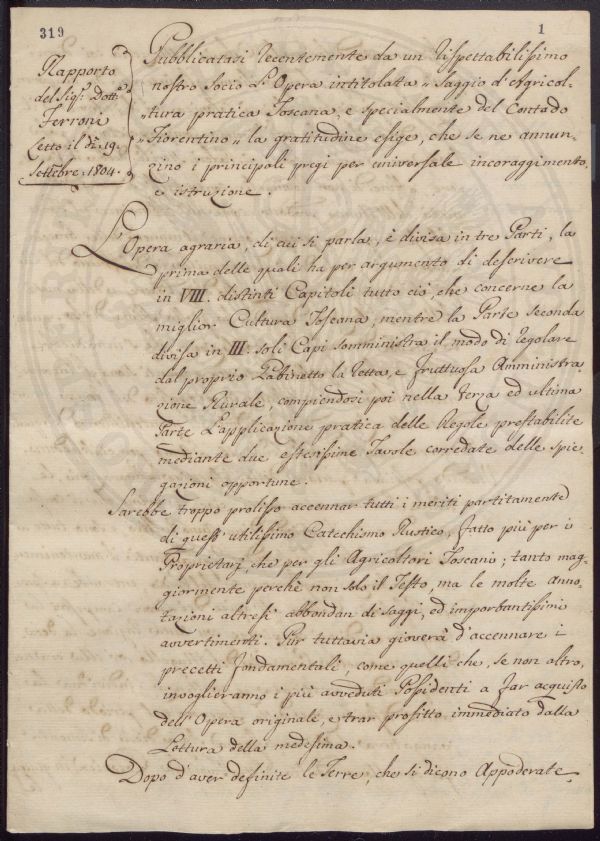 319
1
Rapporto
del Sigr. Dottr.
Ferroni
Letto il dì 19.
Settembre 1804.
Pubblicatasi recentemente da un rispettabilissimo
nostro Socio Opera intitolata „ Saggio d'Agricol-
„tura pratica Toscana, e specialmente del Contado
„Fiorentino „ la gratitudine esige, che se ne annun-
zino i principali pregi per universale incoraggimento,
e istruzione.
L'Opera agraria, di cui si parla, è divisa in tre Parti, la
prima delle quali ha per argumento di descrivere
in VIII. distinti Capitoli tutto ciò, che concerne la
miglior Cultura Toscana, mentre la Parte seconda
divisa in III. soli Capi somministra il modo di regolare
dal proprio Gabinetto la retta, e fruttuosa Amministra
zione Rurale, compiendosi poi nella terza ed ultima
Parte l'applicazione pratica delle Regole prestabilite
mediante due estesissime Tavole corredate delle spie
gazioni opportune.
Sarebbe troppo prolisso accennar tutti i meriti partitamente
di quest'utilissimo Catechismo Rustico, fatto più per i
Proprietarj che per gli Agricoltori Toscani; tanto mag-
giormente perchè non solo il Testo, ma le molte anno-
tazioni altresì abbondan di saggi, ed importantissimi
avvertimenti. Pur tuttavia gioverà d'accennare i
precetti fondamentali come quelli che, se non altro,
invoglieranno i più avveduti Possidenti a far acquisto
dell'Opera originale, e trar profitto immediato dalla
Lettura della medesima.
Dopo d'aver definite le Terre, che si dicono Appoderate,